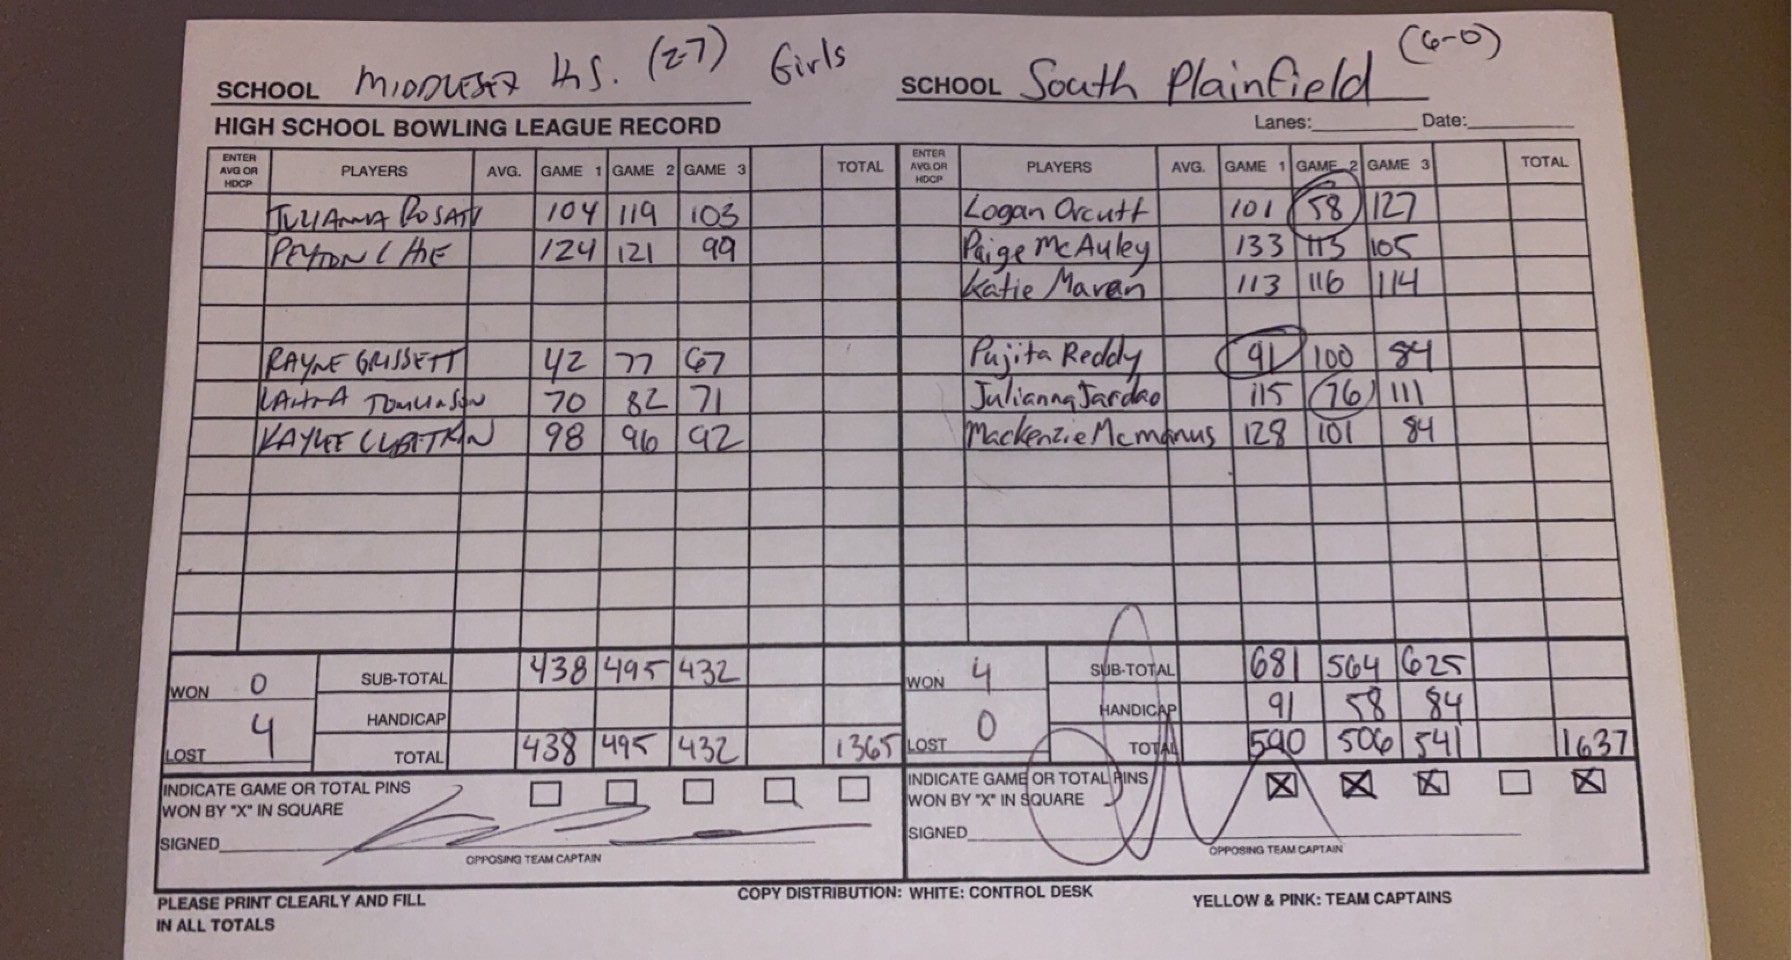 SCHOOL MIDDLESEX H.S. (2-7) Girls SCHOOL South Plainfield (6-0)
HIGH SCHOOL BOWLING LEAGUE RECORD Lanes: Date:
ENTER AVG OR HDCP PLAYERS AVG. GAME 1 GAME 2 GAME 3 TOTAL ENTER AVG OR HDCP PLAYERS AVG. GAME 1 GAME 2 GAME 3 TOTAL
JULIANNA ROSATI 104 119 103 Logan Orcutt 101 58 127
PEYTON 124 121 99 Paige McAuley 133 113 105
Katie Maren 113 116 114
RAYNE GRISSETT 42 77 67 Pujita Reddy 91 100 84
TOMLINSON 70 82 71 Julianna Jardao 115 76 111
KAYLEE 98 96 92 Mackenzie Mcmanus 128 101 84
WON 0 SUB-TOTAL 438 495 432 WON 4 SUB-TOTAL 681 564 625
HANDICAP HANDICAP 91 58 84
LOST 4 TOTAL 438 495 432 1365 LOST 0 TOTAL 590 506 541 1637
INDICATE GAME OR TOTAL PINS INDICATE GAME OR TOTAL PINS
WON BY "X" IN SQUARE WON BY "X" IN SQUARE
SIGNED SIGNED
OPPOSING TEAM CAPTAIN OPPOSING TEAM CAPTAIN
PLEASE PRINT CLEARLY AND FILL COPY DISTRIBUTION: WHITE: CONTROL DESK YELLOW & PINK: TEAM CAPTAINS
IN ALL TOTALS